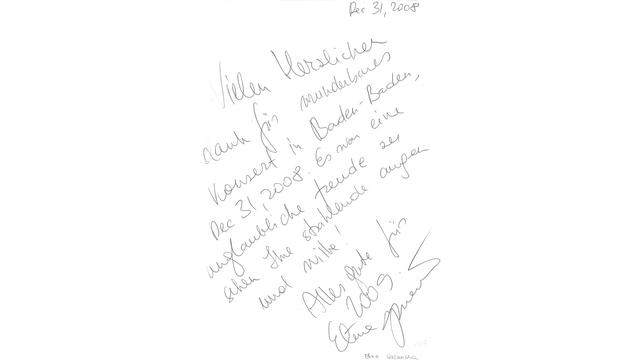 Dec 31, 2008
Vielen Herzlichen
Dank für wunderbares
Konzert in Baden-Baden,
Dec 31, 2008. Es war eine
unglaubliche freude zu
sehen Ihre strahlende augen
und mitke!
Alles gute für
2009.